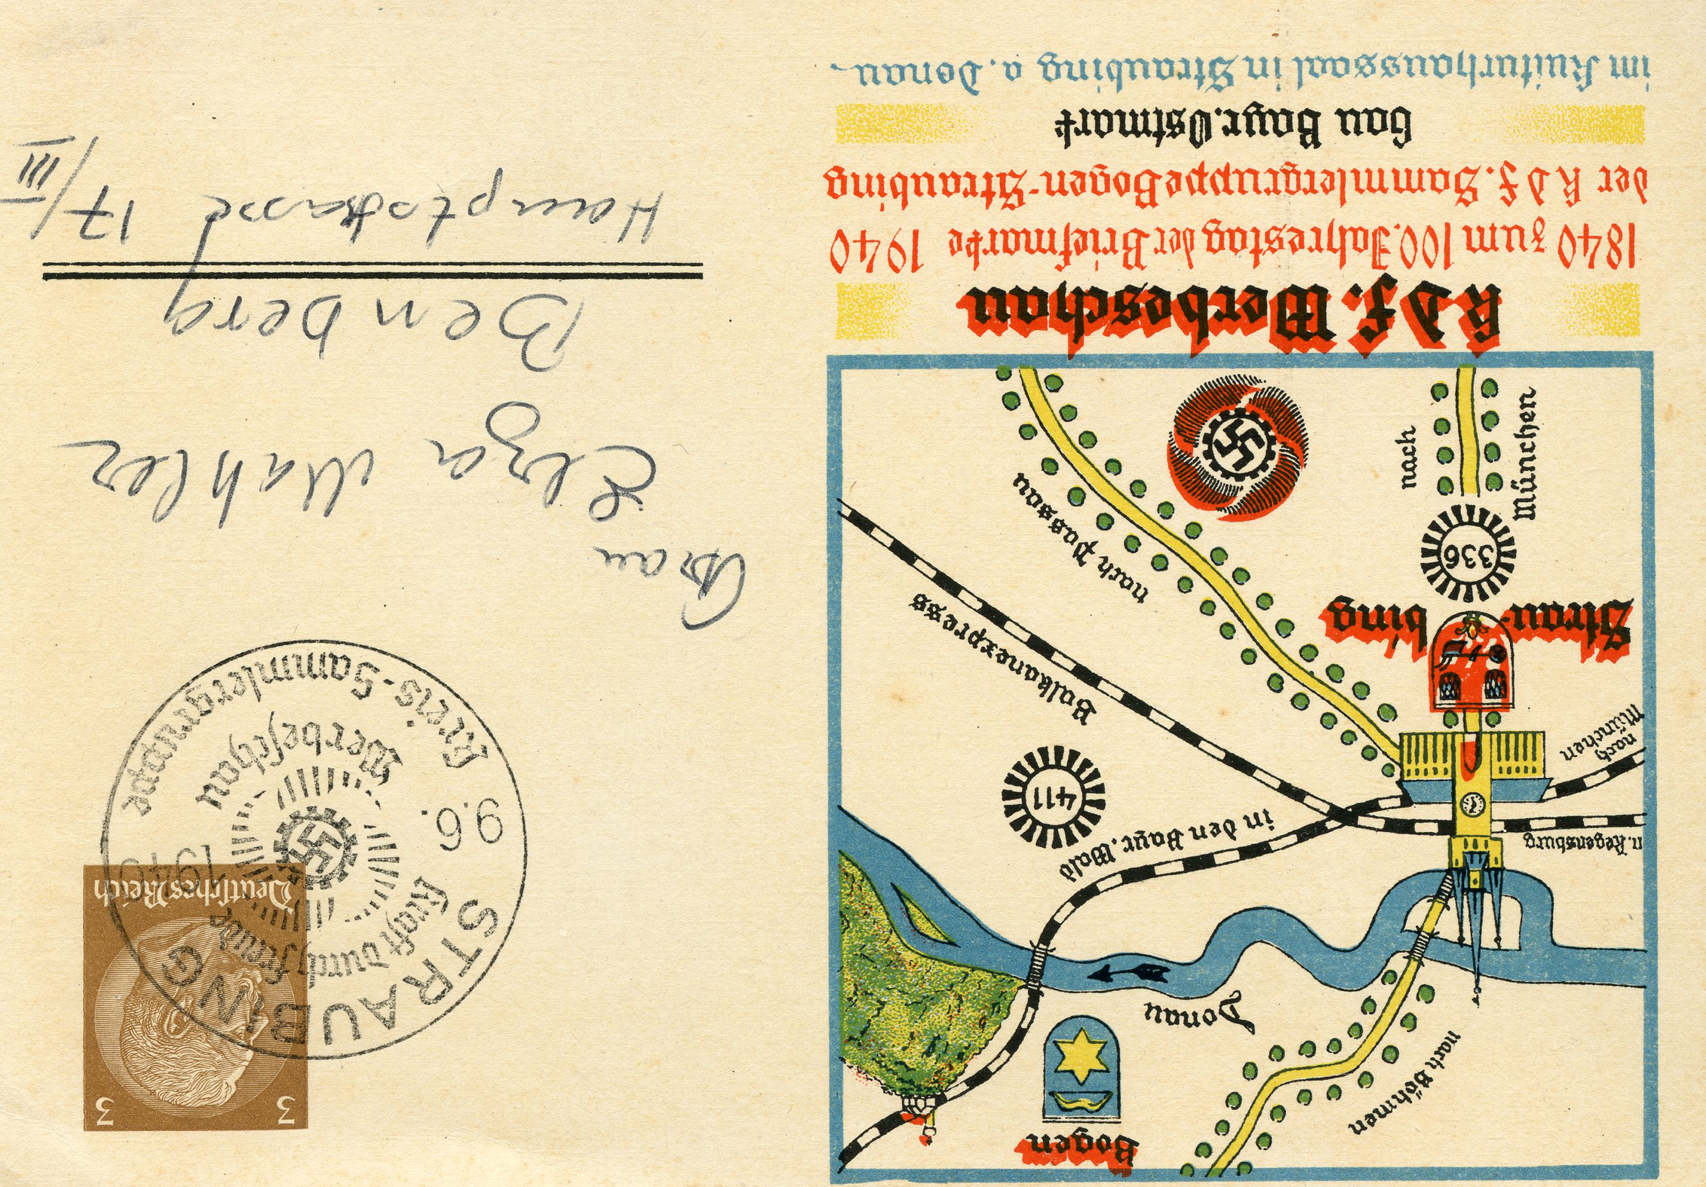 Bogen
nach Böhmen
Donau
in den Bayr. Wald
n. Regensburg
411
nach
München
Balkanexpress
Strau-
bing
336
nach Passau
nach
München
K d F. Werbeschau
1840 zum 100. Jahrestag der Briefmarke 1940
der K d F. Sammlergruppe Bogen-Straubing
Gau Bayr. Ostmark
im Kulturhaussaal in Straubing a. Donau
3 3
Deutsches Reich
STRAUBING
Kraft durch Freude
9.6. 1940
Werbeschau
Kreis-Sammlergruppe
Frau
Elza Mahler
Benberg
Hauptstrasse 17/III